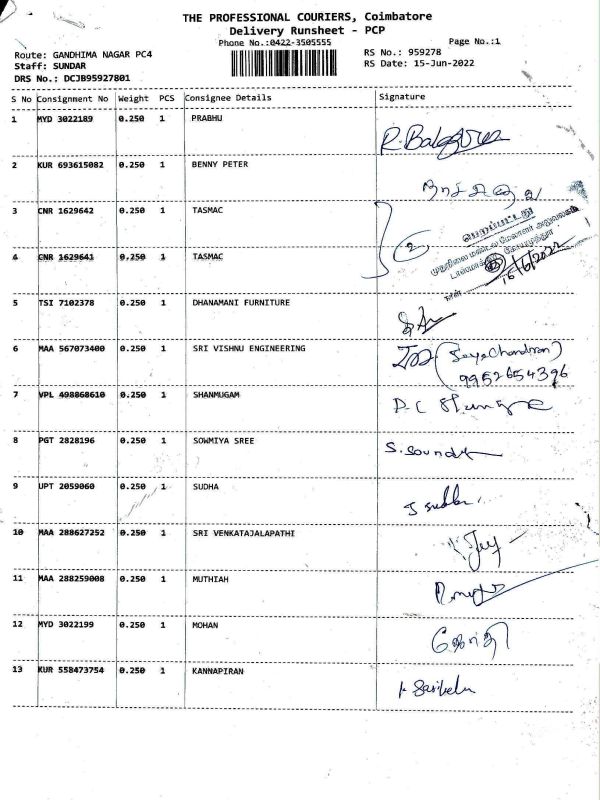 THE PROFESSIONAL COURIERS, Coimbatore
Delivery Runsheet - PCP
Phone No.:0422-3505555
Page No.:1
Route: GANDHIMA NAGAR PC4
RS No.: 959278
Staff: SUNDAR
RS Date: 15-Jun-2022
DRS No.: DCJB95927801
S No Consignment No Weight PCS Consignee Details Signature
1 MYD 3022189 0.250 1 PRABHU
2 KUR 693615082 0.250 1 BENNY PETER
3 CNR 1629642 0.250 1 TASMAC
பெறப்பட்டது
2
4 CNR 1629641 0.250 1 TASMAC
நாள் 16/6/2022
5 TSI 7102378 0.250 1 DHANAMANI FURNITURE
6 MAA 567073400 0.250 1 SRI VISHNU ENGINEERING (JayaChandran)
9952654396
7 VPL 498868610 0.250 1 SHANMUGAM
8 PGT 2828196 0.250 1 SOWMIYA SREE
9 UPT 2059060 0.250 1 SUDHA
10 MAA 288627252 0.250 1 SRI VENKATAJALAPATHI
11 MAA 288259008 0.250 1 MUTHIAH
12 MYD 3022199 0.250 1 MOHAN
13 KUR 558473754 0.250 1 KANNAPIRAN